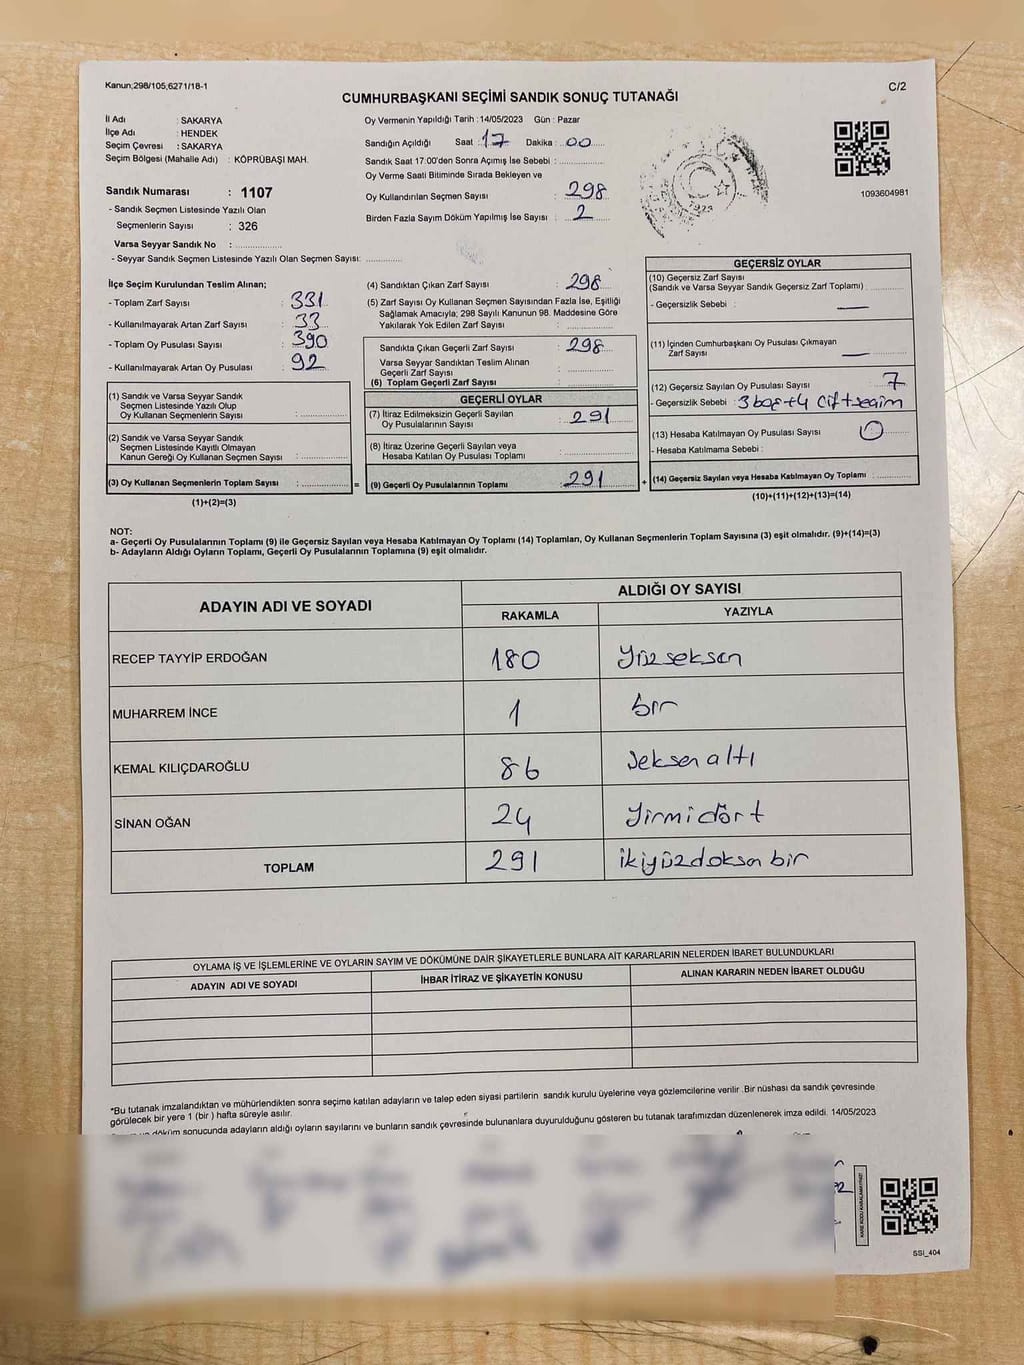 Kanun;298/105;6271/18-1
C/2
CUMHURBAŞKANI SEÇİMİ SANDIK SONUÇ TUTANAĞI
İl Adı : SAKARYA
İlçe Adı : HENDEK
Seçim Çevresi : SAKARYA
Seçim Bölgesi (Mahalle Adı) : KÖPRÜBAŞI MAH.
Sandık Numarası : 1107
- Sandık Seçmen Listesinde Yazılı Olan
Seçmenlerin Sayısı : 326
Varsa Seyyar Sandık No : ..............
- Seyyar Sandık Seçmen Listesinde Yazılı Olan Seçmen Sayısı: ............
Oy Vermenin Yapıldığı Tarih : 14/05/2023 Gün : Pazar
Sandığın Açıldığı Saat : 17 Dakika : 00
Sandık Saat 17:00'den Sonra Açımış İse Sebebi : ..............
Oy Verme Saati Bitiminde Sırada Bekleyen ve
Oy Kullandırılan Seçmen Sayısı : 298
Birden Fazla Sayım Döküm Yapılmış İse Sayısı : 2
1923
1093604981
İlçe Seçim Kurulundan Teslim Alınan;
- Toplam Zarf Sayısı : 331
- Kullanılmayarak Artan Zarf Sayısı : 33
- Toplam Oy Pusulası Sayısı : 390
- Kullanılmayarak Artan Oy Pusulası : 92
(1) Sandık ve Varsa Seyyar Sandık
Seçmen Listesinde Yazılı Olup
Oy Kullanan Seçmenlerin Sayısı : ..............
(2) Sandık ve Varsa Seyyar Sandık
Seçmen Listesinde Kayıtlı Olmayan
Kanun Gereği Oy Kullanan Seçmen Sayısı : ..............
(3) Oy Kullanan Seçmenlerin Toplam Sayısı : .............. =
(1)+(2)=(3)
(4) Sandıktan Çıkan Zarf Sayısı : 298
(5) Zarf Sayısı Oy Kullanan Seçmen Sayısından Fazla İse, Eşitliği
Sağlamak Amacıyla; 298 Sayılı Kanunun 98. Maddesine Göre
Yakılarak Yok Edilen Zarf Sayısı : ..............
Sandıkta Çıkan Geçerli Zarf Sayısı : 298
Varsa Seyyar Sandıktan Teslim Alınan
Geçerli Zarf Sayısı : ..............
(6) Toplam Geçerli Zarf Sayısı : ..............
GEÇERLİ OYLAR
(7) İtiraz Edilmeksizin Geçerli Sayılan
Oy Pusulalarının Sayısı : 291
(8) İtiraz Üzerine Geçerli Sayılan veya
Hesaba Katılan Oy Pusulası Toplamı : ..............
(9) Geçerli Oy Pusulalarının Toplamı : 291 +
GEÇERSİZ OYLAR
(10) Geçersiz Zarf Sayısı
(Sandık ve Varsa Seyyar Sandık Geçersiz Zarf Toplamı) ............
- Geçersizlik Sebebi : —
(11) İçinden Cumhurbaşkanı Oy Pusulası Çıkmayan
Zarf Sayısı —
(12) Geçersiz Sayılan Oy Pusulası Sayısı : 7
- Geçersizlik Sebebi : 3 boş+4 Çift seçim
(13) Hesaba Katılmayan Oy Pusulası Sayısı : 0
- Hesaba Katılmama Sebebi :
(14) Geçersiz Sayılan veya Hesaba Katılmayan Oy Toplamı : ............
(10)+(11)+(12)+(13)=(14)
NOT:
a- Geçerli Oy Pusulalarının Toplamı (9) ile Geçersiz Sayılan veya Hesaba Katılmayan Oy Toplamı (14) Toplamları, Oy Kullanan Seçmenlerin Toplam Sayısına (3) eşit olmalıdır. (9)+(14)=(3)
b- Adayların Aldığı Oyların Toplamı, Geçerli Oy Pusulalarının Toplamına (9) eşit olmalıdır.
ADAYIN ADI VE SOYADI
ALDIĞI OY SAYISI
RAKAMLA YAZIYLA
RECEP TAYYİP ERDOĞAN 180 Yüzseksen
MUHARREM İNCE 1 bir
KEMAL KILIÇDAROĞLU 86 Seksen altı
SİNAN OĞAN 24 Yirmidört
TOPLAM 291 ikiyüzdoksan bir
OYLAMA İŞ VE İŞLEMLERİNE VE OYLARIN SAYIM VE DÖKÜMÜNE DAİR ŞİKAYETLERLE BUNLARA AİT KARARLARIN NELERDEN İBARET BULUNDUKLARI
ADAYIN ADI VE SOYADI İHBAR İTİRAZ VE ŞİKAYETİN KONUSU ALINAN KARARIN NEDEN İBARET OLDUĞU
*Bu tutanak imzalandıktan ve mühürlendikten sonra seçime katılan adayların ve talep eden siyasi partilerin sandık kurulu üyelerine veya gözlemcilerine verilir .Bir nüshası da sandık çevresinde
görülecek bir yere 1 (bir ) hafta süreyle asılır.
döküm sonucunda adayların aldığı oyların sayılarını ve bunların sandık çevresinde bulunanlara duyurulduğunu gösteren bu tutanak tarafımızdan düzenlenerek imza edildi. 14/05/2023
KARE KODU KARALAMAYINIZ!
SSI_404